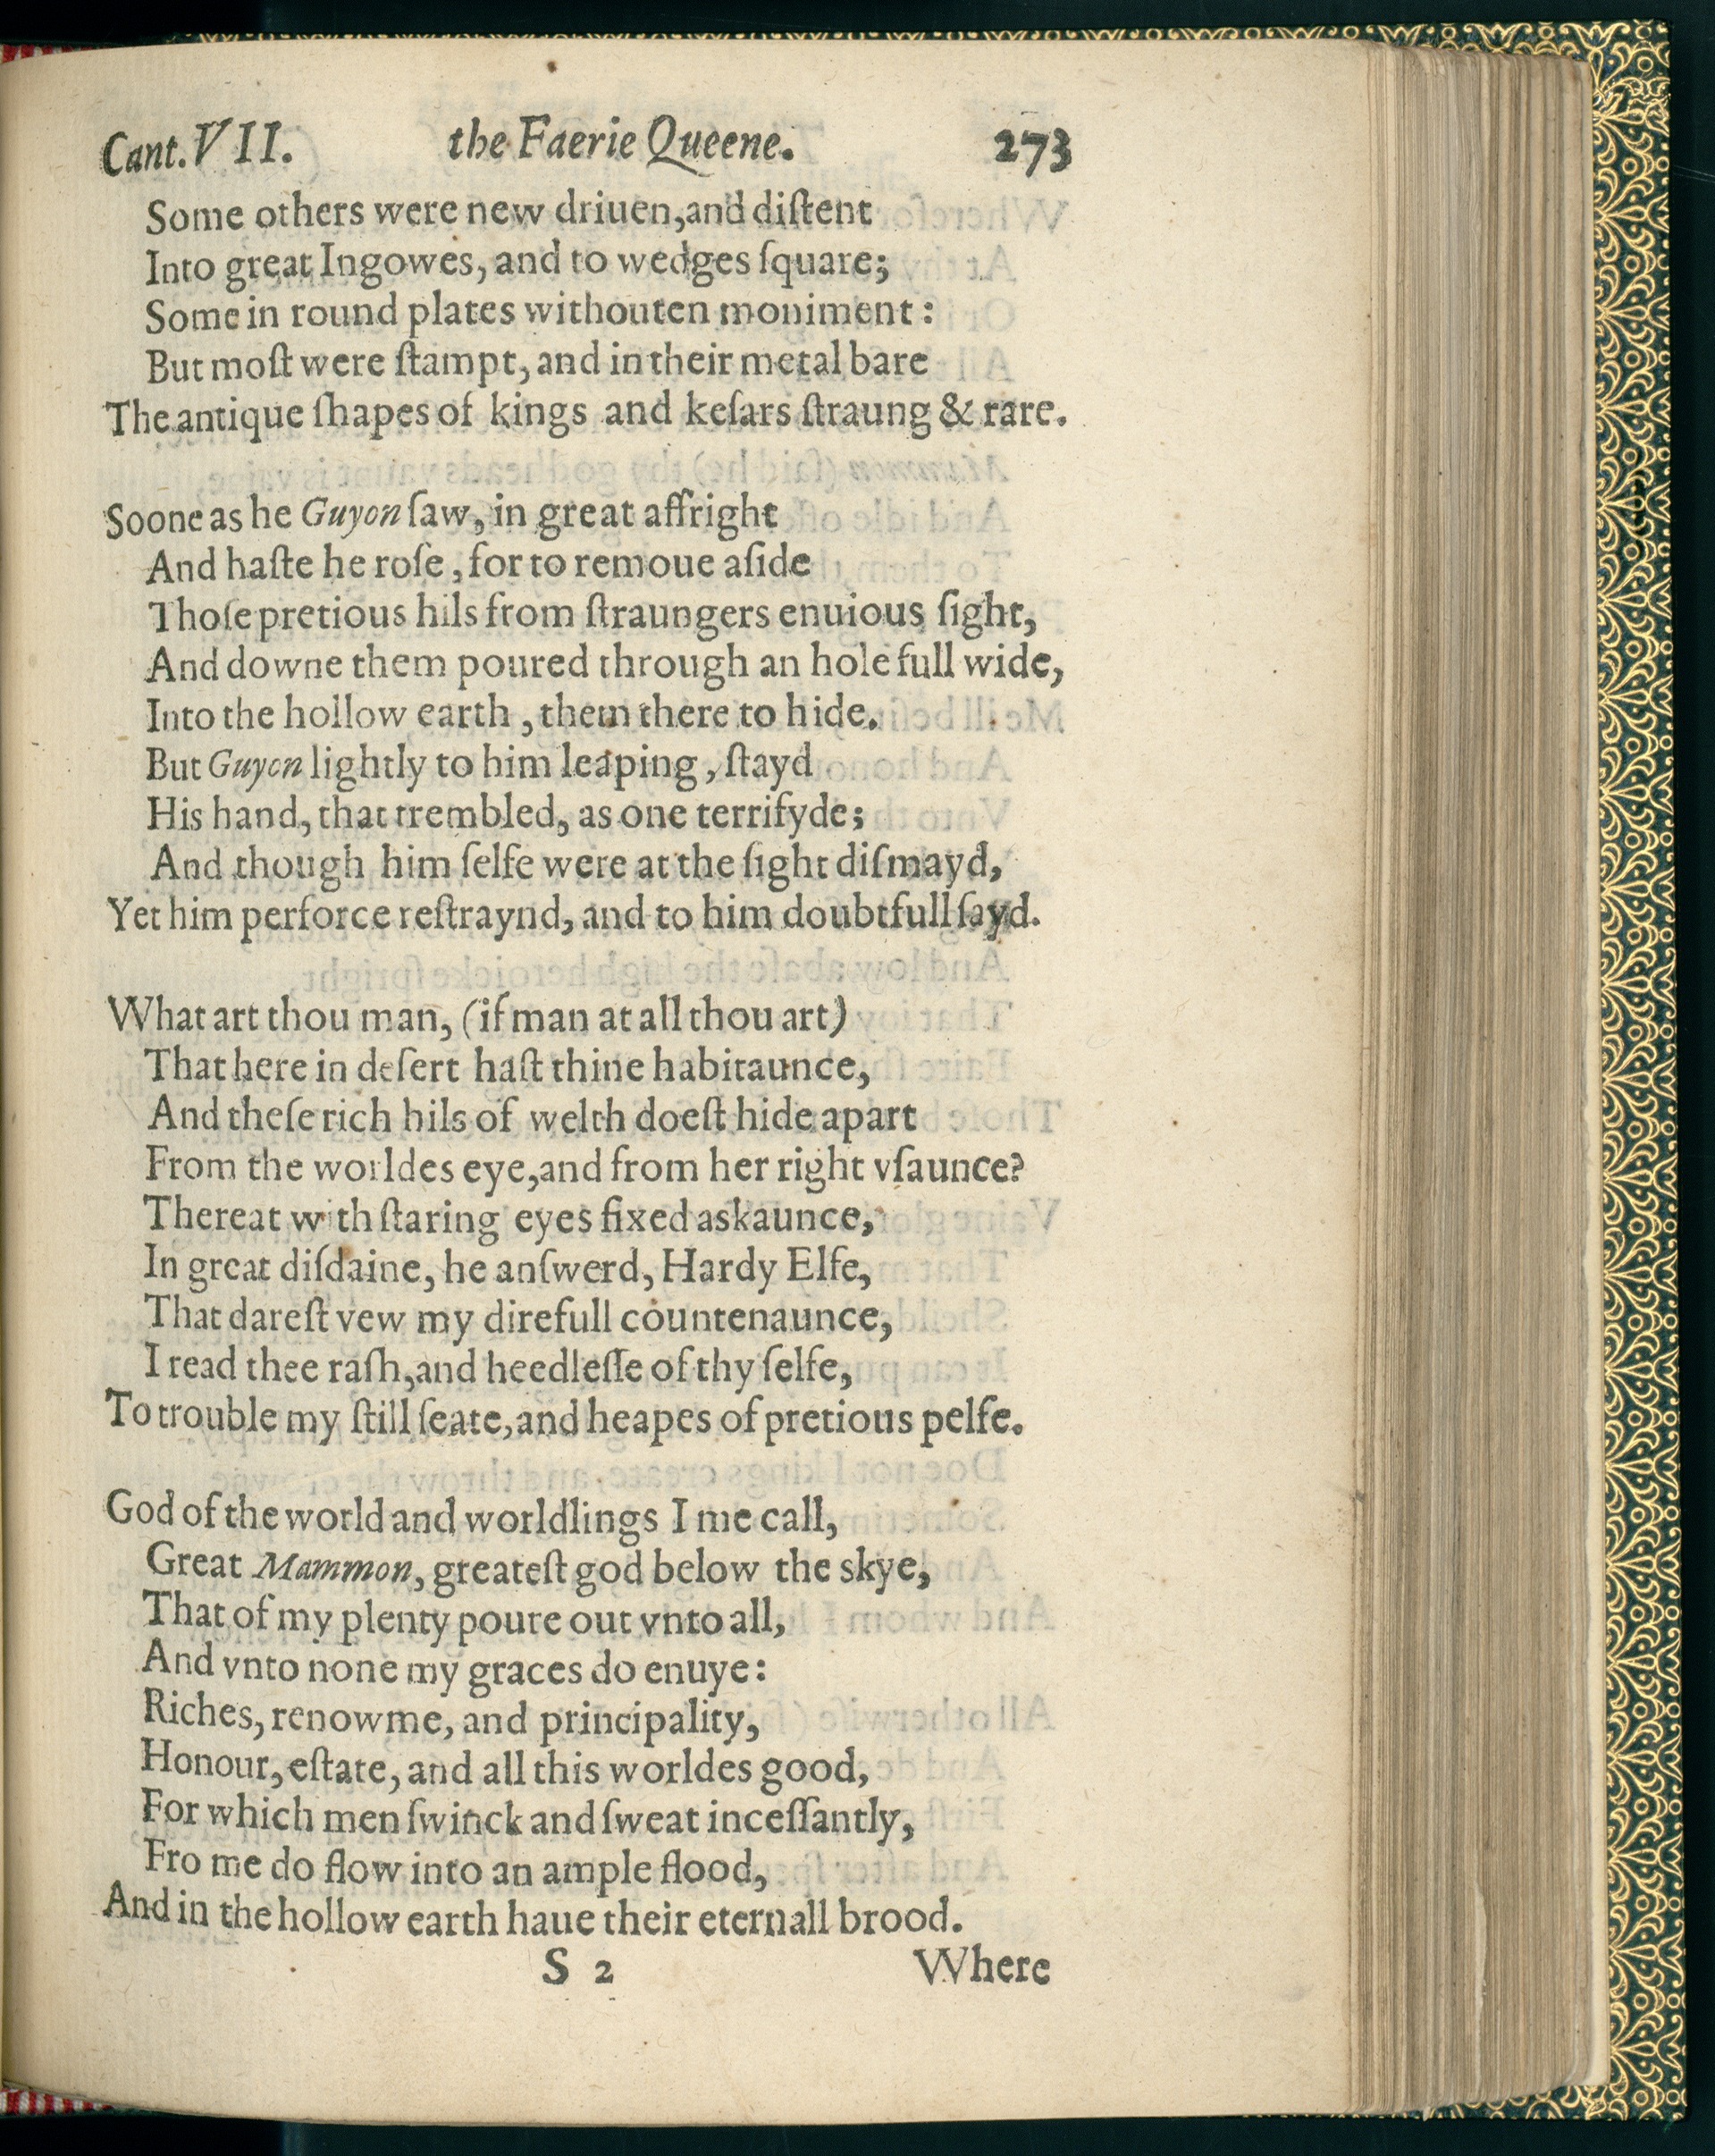 Cant. VII. the Faerie Queene. 273
Some others were new driuen, and diſtent
Into great Ingowes, and to wedges ſquare;
Some in round plates withouten moniment:
But moſt were ſtampt, and in their metal bare
The antique ſhapes of kings and keſars ſtraung & rare.
Soone as he Guyon ſaw, in great affright
And haſte he roſe, for to remoue aſide
Thoſe pretious hils from ſtraungers enuious ſight,
And downe them poured through an hole full wide,
Into the hollow earth, them there to hide.
But Guyon lightly to him leaping, ſtayd
His hand, that trembled, as one terrifyde;
And though him ſelfe were at the ſight diſmayd,
Yet him perforce reſtraynd, and to him doubtfull ſayd.
What art thou man, (if man at all thou art)
That here in deſert haſt thine habitaunce,
And theſe rich hils of welth doeſt hide apart
From the worldes eye, and from her right vſaunce?
Thereat with ſtaring eyes fixed askaunce,
In great diſdaine, he anſwerd, Hardy Elfe,
That dareſt vew my direfull countenaunce,
I read thee raſh, and heedleſſe of thy ſelfe,
To trouble my ſtill ſeate, and heapes of pretious pelfe.
God of the world and worldlings I me call,
Great Mammon, greateſt god below the skye,
That of my plenty poure out vnto all,
And vnto none my graces do enuye:
Riches, renowme, and principality,
Honour, eſtate, and all this worldes good,
For which men ſwinck and ſweat inceſſantly,
Fro me do flow into an ample flood,
And in the hollow earth haue their eternall brood.
S 2 Where